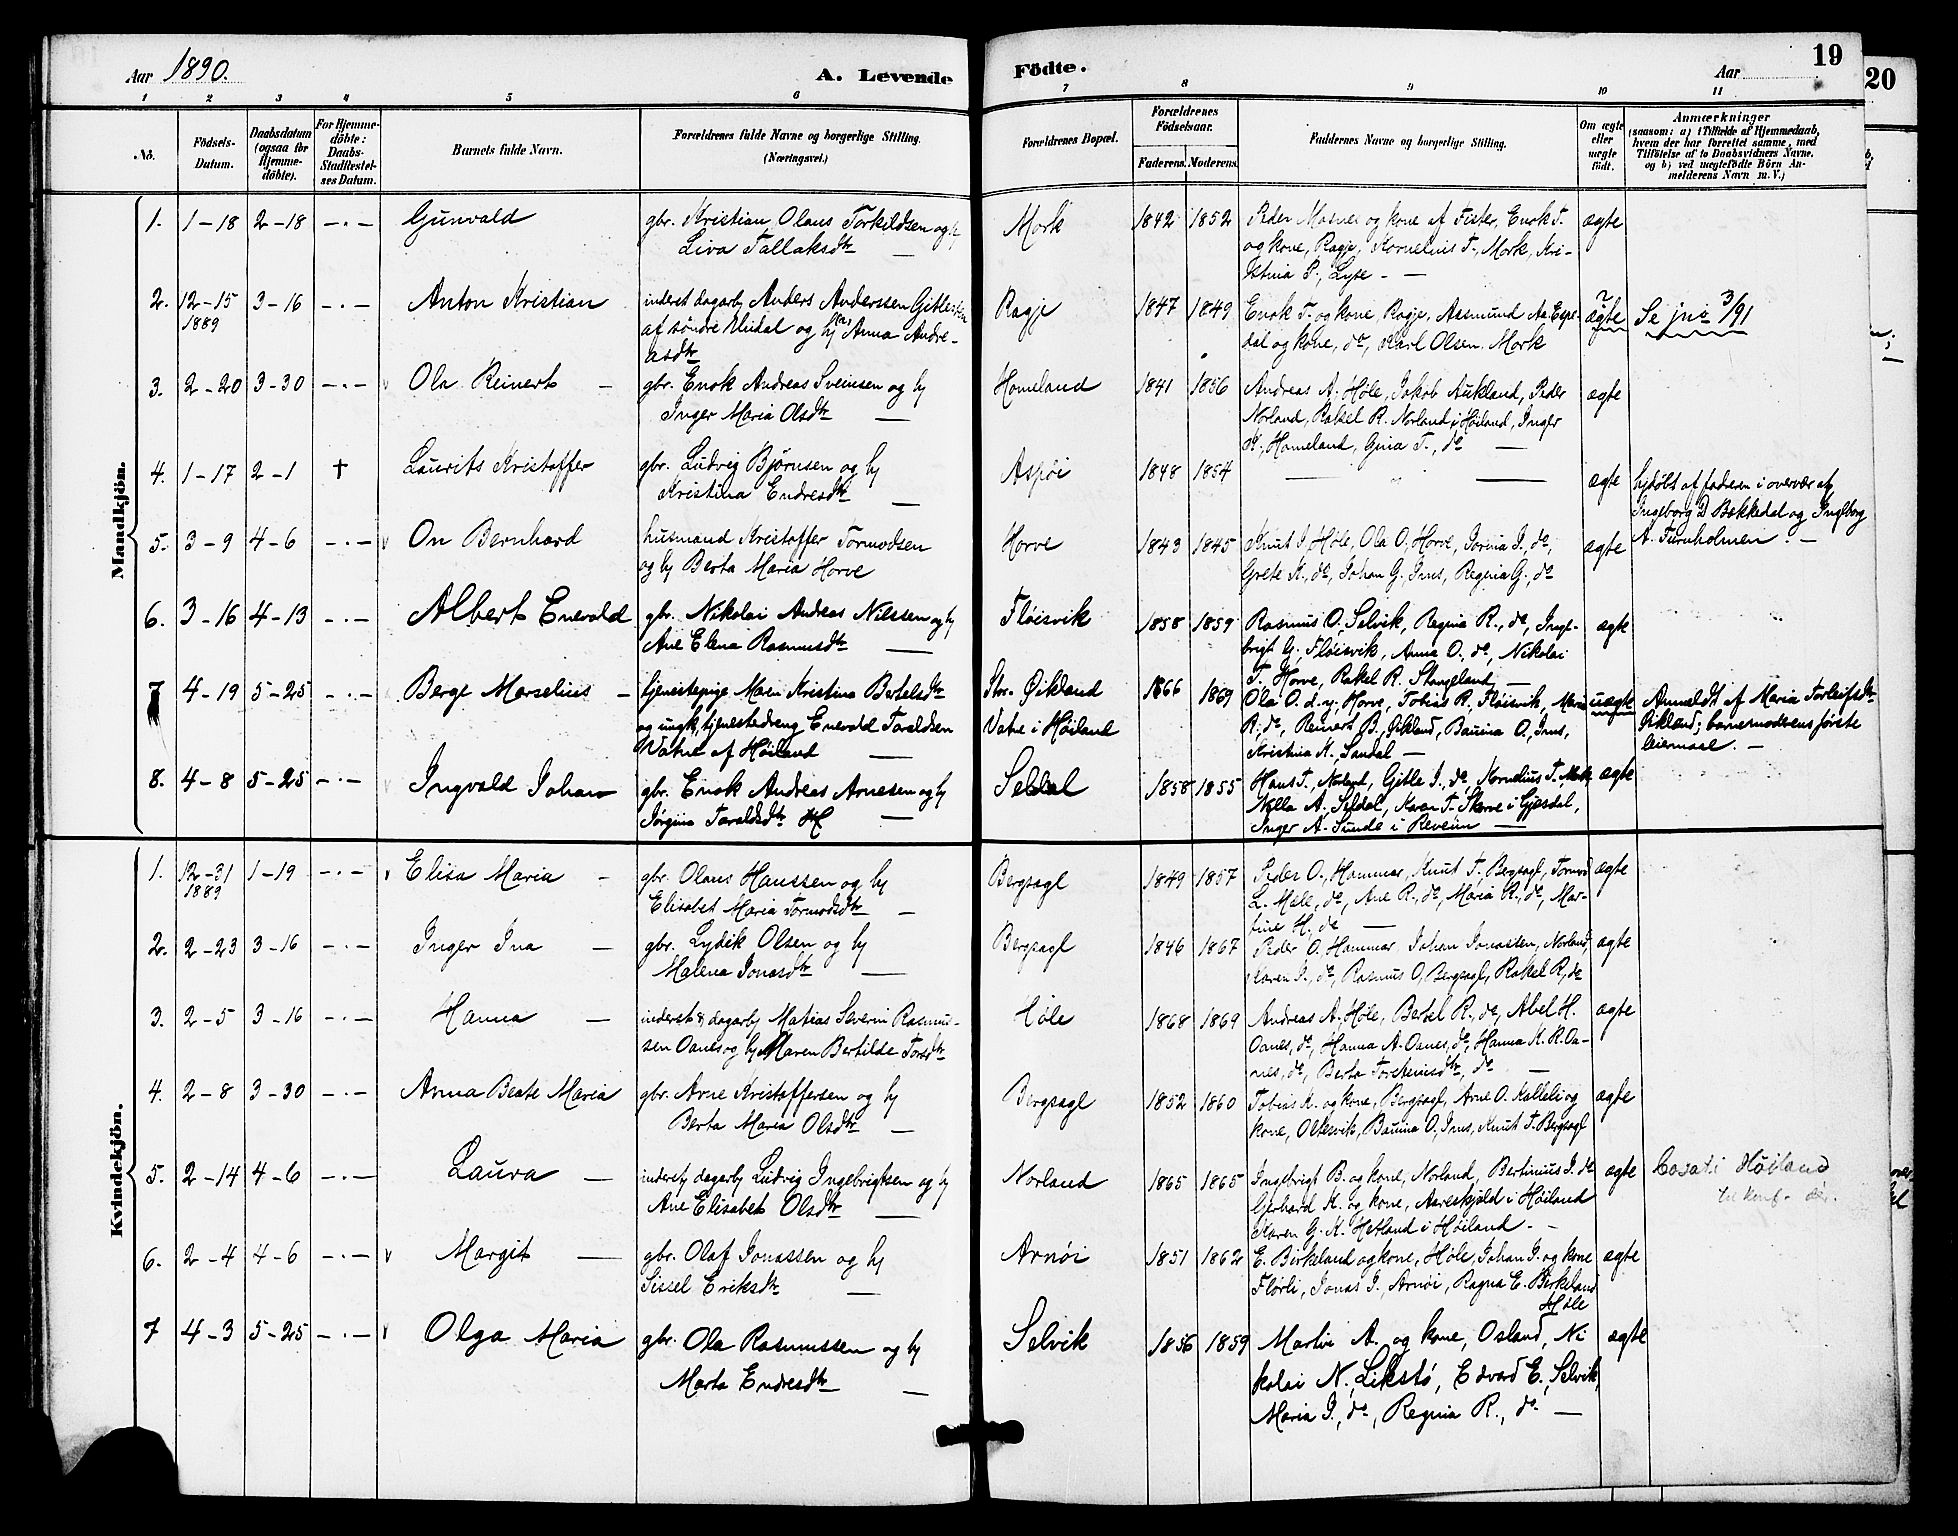 Aar 1890.
A. Levende Födte.
Aar
19
20
1 2 3 4 5 6 7 8 9 10 11
No.
Födsels-Datum.
Daabsdatum (ogsaa for Hjemme-döbte).
For Hjemme-döbte: Daabs-Stadfæstel-ses Datum.
Barnets fulde Navn.
Forældrenes fulde Navne og borgerlige Stilling. (Næringsvei.)
Forældrenes Bopæl.
Forældrenes Födselsaar.
Faderens. Moderens.
Faddernes Navne og borgerlige Stilling.
Om ægte eller uægte födt.
Anmærkninger
(saasom: a) i Tilfælde af Hjemmedaab, hvem der har forrettet samme, med Tilföielse af to Daabsvidners Navne, og b) ved uægtefödte Börn An-melderens Navn m. V.)
Mandkjön.
1. 1-18 2-18 -.- Gunvald gbr. Kristian Olaus Torkildsen og hj Mork 1842 1852 Peder Mosnes og kone af Fister, Enok T. ægte
Liva Tallaksdtr — og kone, Ragje, Kornelius T., Mork, Kri-
stina P., Lyse - —
2. 12-15 3-16 -.- Anton Kristian inderst dagarb Anders Anderssen Gitlesen Ragje 1847 1849 Enok T. og kone Ragje, Aasmund Aa. Espe- ægte Se jno 3/91
1889 af söndre Undal og hj Anna Andre- dal og kone, do, Karl Olsen Mork
asdtr
3. 2-20 3-30 -.- Ola Reinert - gbr. Enok Andreas Sveinsen og hj Homeland 1841 1856 Andreas A, Høle, Jakob Aukland, Peder ægte
Inger Maria Olsdtr — Norland, Rakel R. Norland i Høiland, Inger
K., Homeland, Gina T., do —
4. 1-17 2-1 † Laurits Kristoffer gbr. Ludvig Bjørnsen og hj Aspøi 1848 1854 — " — ægte hjdøbt af faderen i overvær af
Kristina Endresdtr — Ingeborg D Bækkedal og Ingeborg
A. Furuholmen. -
5. 3-9 4-6 -.- On Bernhard husmand Kristoffer Tormodsen Horve 1843 1845 Knut I, Høle, Ola O, Horve, Jorina I., do, ægte
og hj Berta Maria Horve Grete K., do, Johan G., Ims, Regina G., do
6. 3-16 4-13 -.- Albert Enevald gbr. Nikolai Andreas Nilssen og hj Fløisvik 1858 1859 Rasmus O, Selvik, Regina R., do, Inge- ægte
Ane Elena Rasmusdtr — brigt G. Fløisvik, Anna O., do, Nikolai
T. Horve, Rakel R. Stangeland —
7 4-19 5-25 -.- Berge Marselius - tjenestepige Maren Kristina Bertelsdtr Str. Øikland 1866 1869 Ola O. d.y., Horve, Tobias R, Fløisvik, Maria uægte Anmeldt af Maria Torleifsdtr
og ungk, tjenestedreng Enevald Taraldsen Vatne i Høiland R, do, Reinert B., Øikland, Bauina O., Ims, Øikland; barnemoderens første
Vatne af Høiland — Kristina K. Sandal — leiermaal. -
8. 4-8 5-25 -.- Ingvald Johan gbr. Enok Andreas Arnesen og hj Seldal 1858 1855 Hans T., Norland, Gitle I., do, Kornelius T. Mork, ægte
Jorgina Taraldsdtr — Nilla A. Seldal, Karen T. Skorve i Gjesdal,
Inger A. Sunde i Reveim —
Kvindekjön.
1. 12-31 1-19 -.- Elisa Maria - gbr. Olaus Hanssen og hj Bergsagl 1849 1857 Peder O., Hammar, Knut T., Bergsagl, Tormod ægte
1889 Elisabet Maria Tormodsdtr — L. Mæle, do, Ane R., do, Maria R., do, Mar-
tine H. do —
2. 2-23 3-16 -.- Inger Ina - gbr. Lydik Olsen og hj Bergsagl 1846 1867 Peder O. Hammar, Johan Jonassen, Norland, ægte
Malena Jonasdtr — Karen I., do, Rasmus O, Bergsagl, Rakel R, do
3. 2-5 3-16 -.- Hanna - inderst & dagarb Matias Severin Rasmus- Høle 1868 1869 Andreas A, Høle, Bertel R., do, Abel H. ægte
sen Oanes og hj Maren Bertilde Torsdtr Oanes, do, Hanna A. Oanes, do, Hanna K. R. Oa-
nes, do, Berta Torsteinsdtr, do —
4. 2-8 3-30 -.- Anna Beate Maria gbr. Arne Kristoffersen og hj Bergsagl 1852 1860 Tobias K. og kone, Bergsagl, Arne O. Kolleli og ægte
Berta Maria Olsdtr — kone, Oltesvik, Bauina O, Ims, Knut T. Bergsagl
5. 2-14 4-6 -.- Laura - inderst, dagarb Ludvig Ingebrigtsen og hj Norland 1865 1865 Ingebrigt B. og kone, Norland, Bertinius I. do ægte Bosat i Høiland
Ane Elisabet Olsdtr — Gerhard K. og kone, Aareskjold i Høiland til konf. der.
Karen G. K. Hetland i Høiland. -
6. 2-4 4-6 -.- Margit — gbr. Olaf Jonassen og hj Arnøi 1851 1862 E. Birkeland og kone, Høle, Johan J. og kone ægte
Sissel Eriksdtr — Flørli, Jonas J., Arnøi, Ragna E. Birkeland
Høle
7 4-3 5-25 -.- Olga Maria gbr. Ola Rasmussen og hj Selvik 1856 1859 Martin A. og kone, Osland, Ni ægte
Marta Endresdtr — kolai N., Likstø, Edvard E., Selvik,
Maria I., do, Regina R., do —